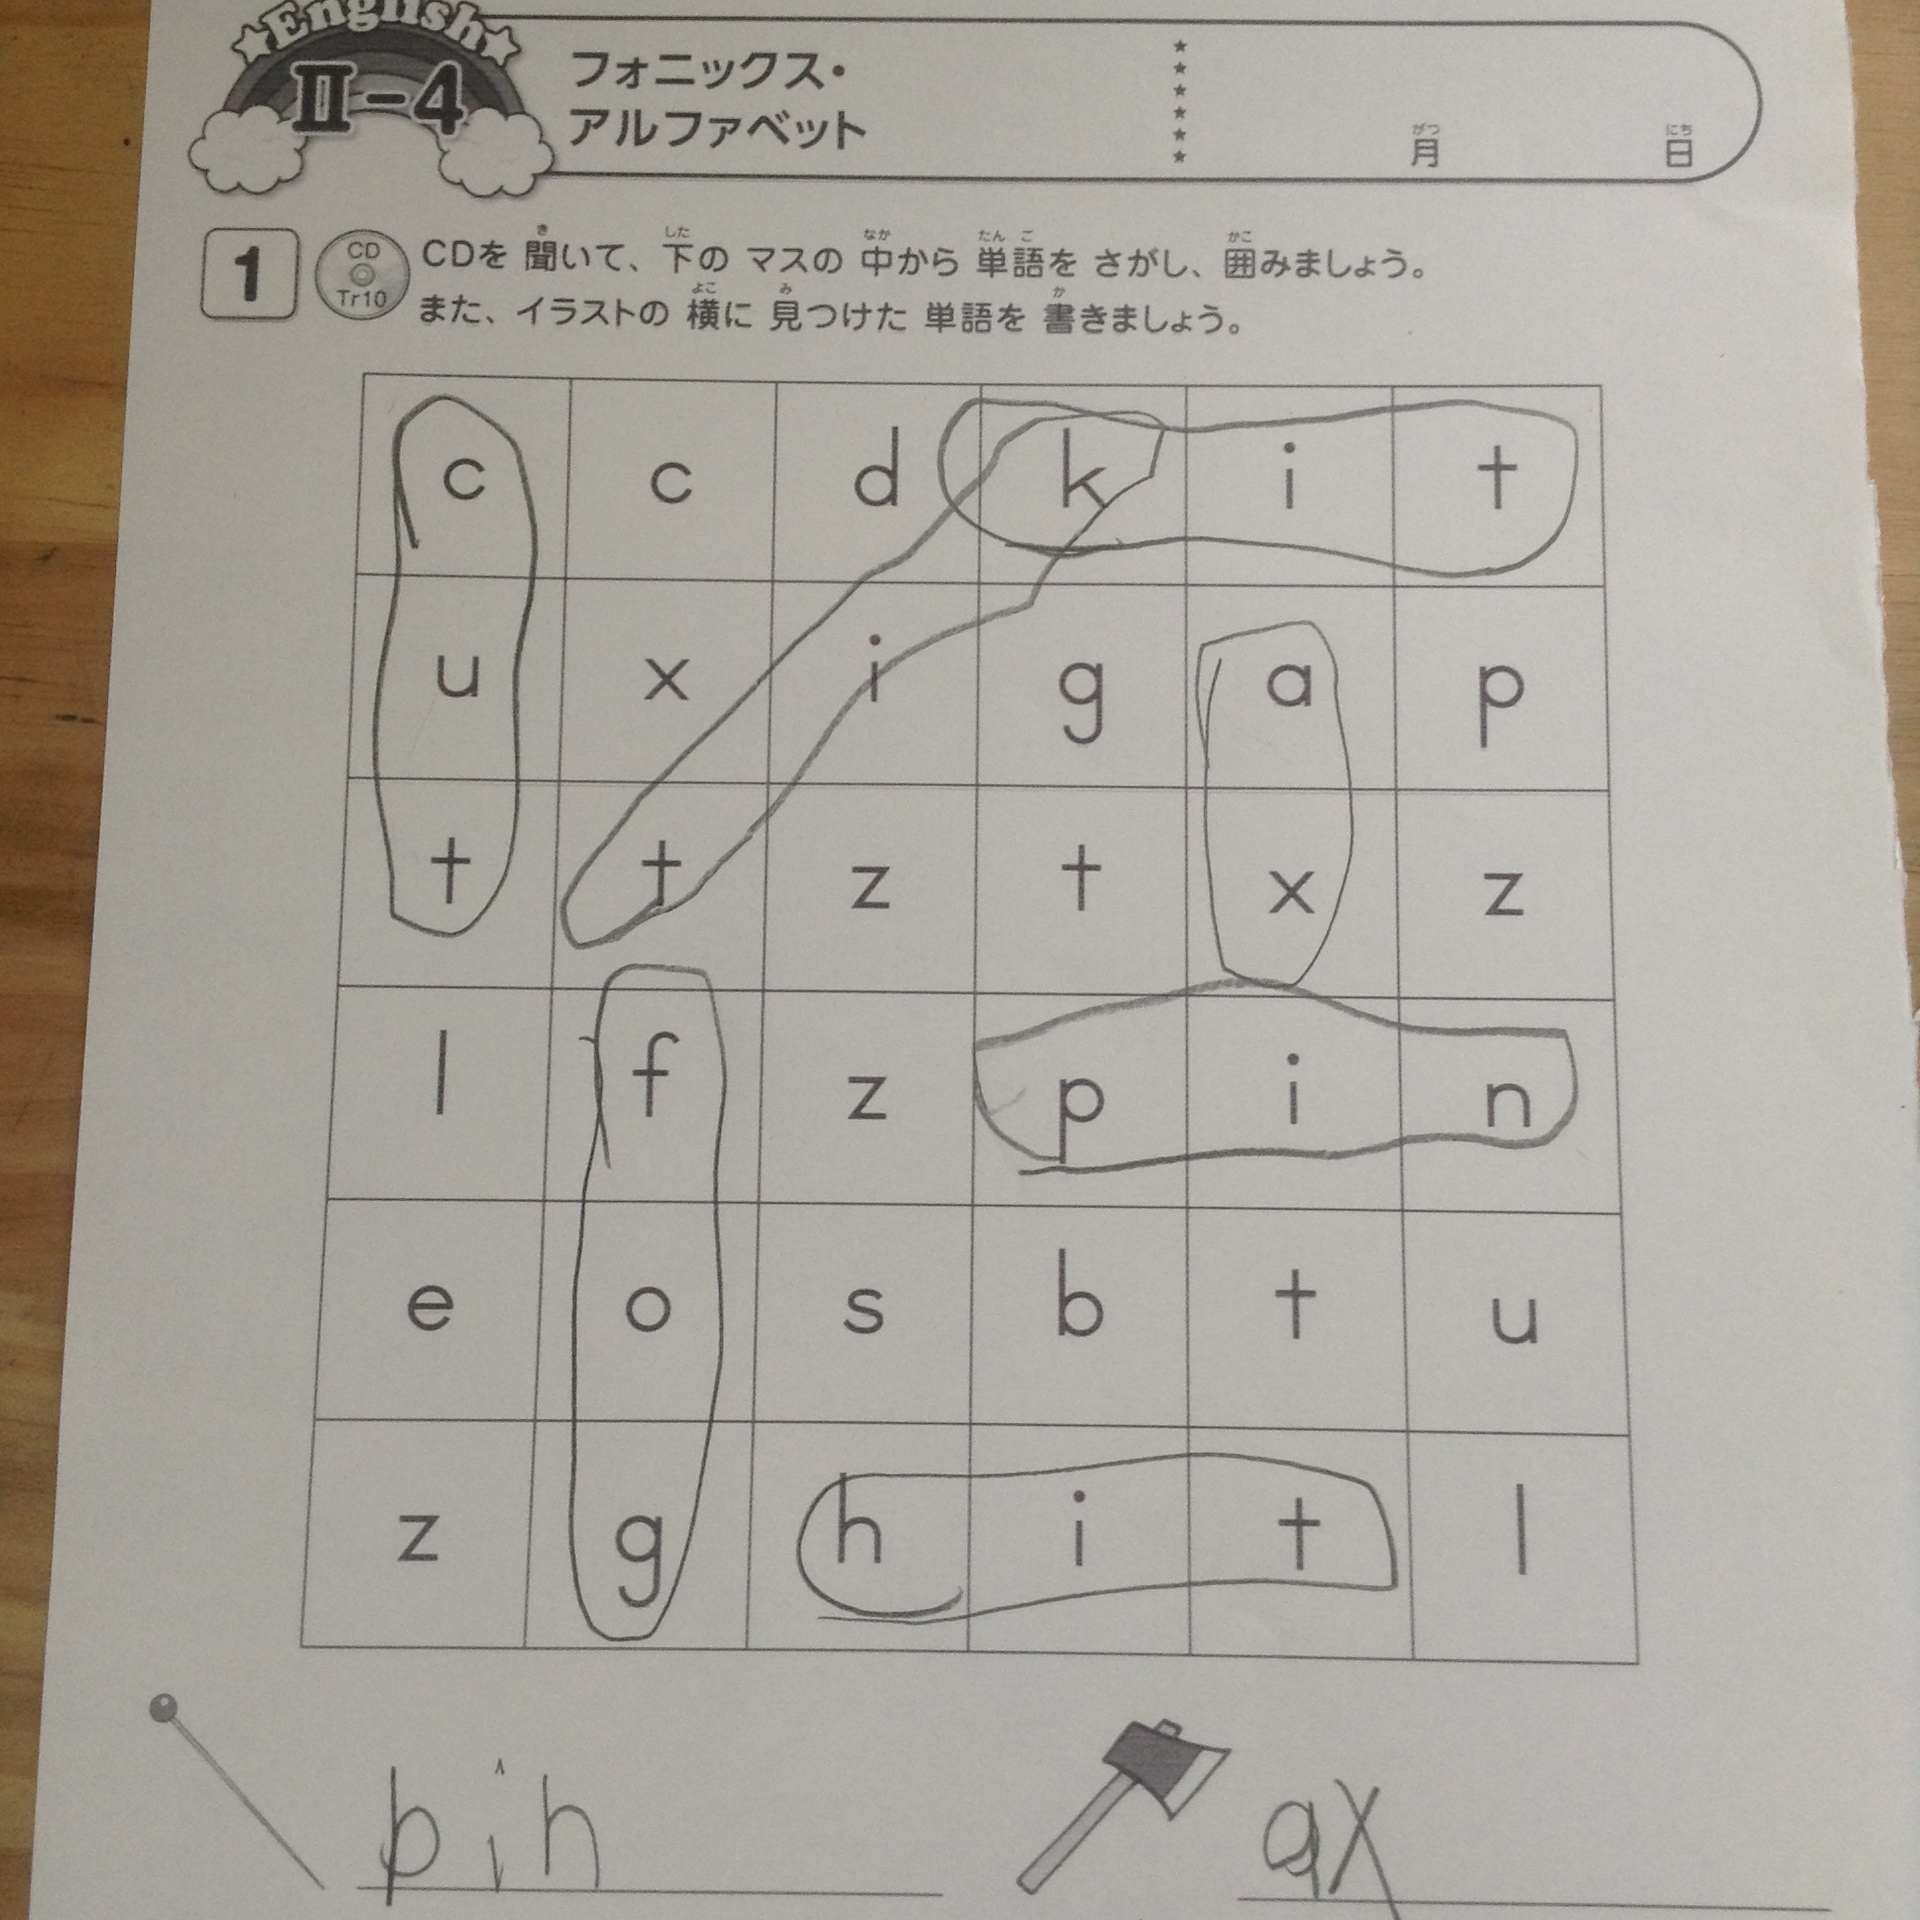 English
Ⅱ-4
フォニックス・
アルファベット
月 日
がつ にち
1
CD
Tr10
CDを 聞いて、下の マスの 中から 単語を さがし、囲みましょう。
き した なか たん ご かこ
また、イラストの 横に 見つけた 単語を 書きましょう。
よこ み か
c c d k i t
u x i g a p
t t z t x z
l f z p i n
e o s b t u
z g h i t l
pin
ax